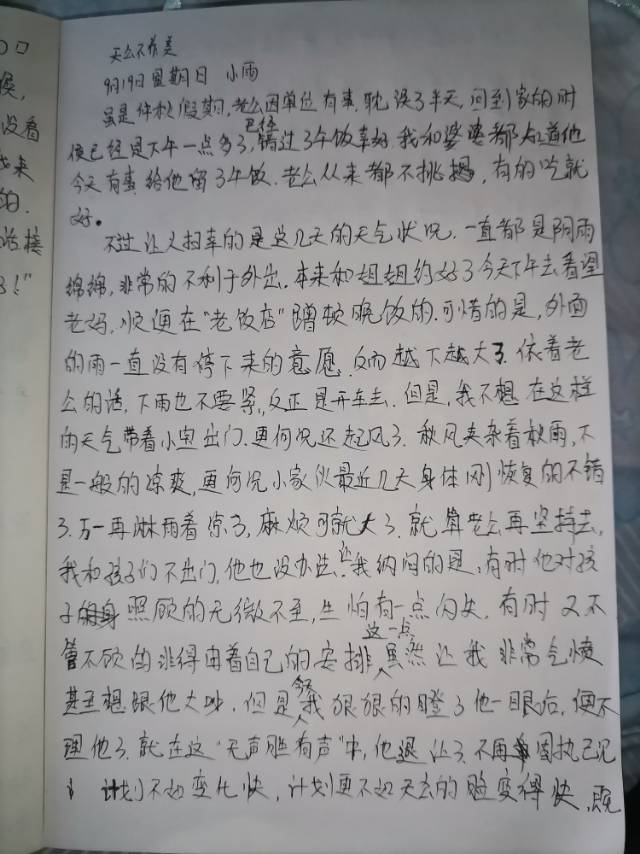 口口
候,
没看
来
的.
话接
了!"
天公不作美
9月19日 星期日 小雨
虽是休秋假期,老公因单位有事,耽误了半天,回到家的时
候已经是下午一点多了,已经错过了午饭幸好,我和婆婆都知道他
今天有事,给他留了午饭.老公从来都不挑拣,有的吃就
好。
不过让人扫幸的是这几天的天气状况.一直都是阴雨
绵绵,非常的不利于外出.本来和姐姐约好了今天下午去看望
老妈,顺便在"老饭店"蹭顿晚饭的.可惜的是,外面
的雨一直没有停下来的意愿,反而越下越大了.依着老
公的话,下雨也不要紧,反正是开车去.但是,我不想在这样
的天气带着小宝出门.更何况还起风了.秋风夹杂着秋雨,不
是一般的凉爽,更何况小家伙最近几天身体刚恢复的不错
了.万一再淋雨着凉了,麻烦可就大了.就算老公再坚持去,
我和孩子们不出门,他也没办法.让我纳闷的是,有时他对孩
子照顾的无微不至,生怕有一点闪失.有时又不
管不顾的非得由着自己的安排,这一点虽然让我非常气愤
甚至想跟他大吵.但是,今天我狠狠的瞪了他一眼后,便不
理他了.就在这"无声胜有声"中,他退让了.不再固执己见
计划不如变化快,计划更不如天公的脸变得快,既